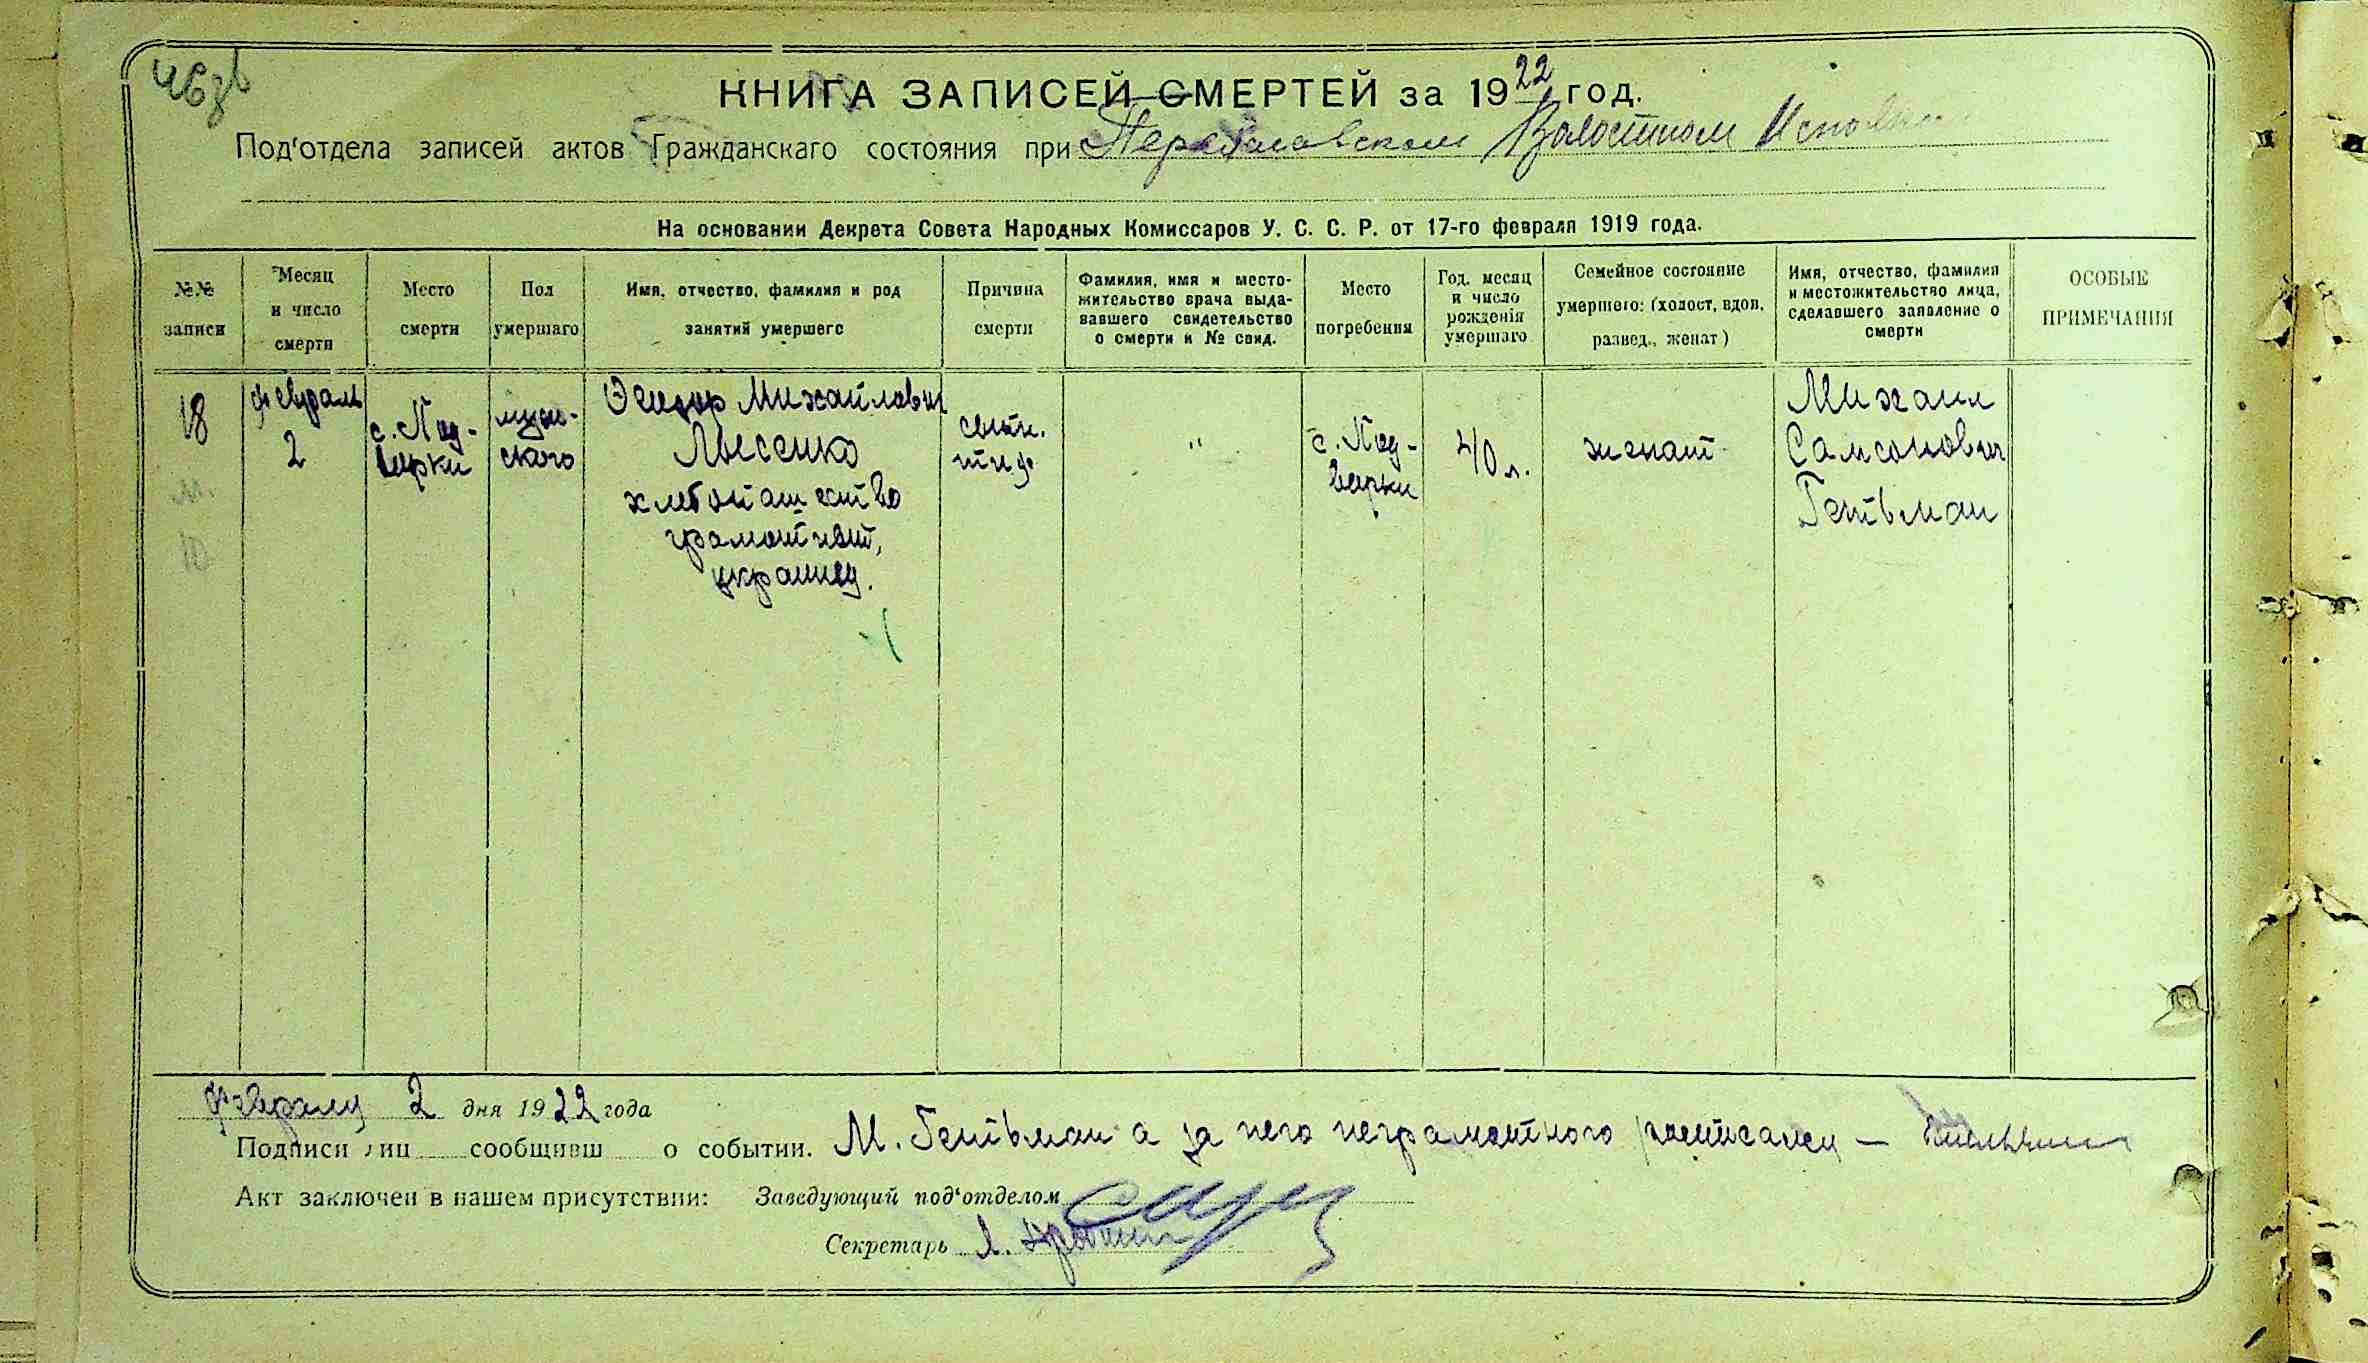 46зв
КНИГА ЗАПИСЕЙ СМЕРТЕЙ за 1922 год.
Под'отдела записей актов Гражданскаго состояния при Переяславском Волостном Исполк
На основании Декрета Совета Народных Комиссаров У. С. С. Р. от 17-го февраля 1919 года.
№№ записи
Месяц и число смерти
Место смерти
Пол умершаго
Имя, отчество, фамилия и род занятий умершего
Причина смерти
Фамилия, имя и место-
жительство врача выда-
вавшего свидетельство
о смерти и № свид.
Место погребения
Год, месяц
и число
рождения
умершаго
Семейное состояние
умершего: (холост, вдов,
развед., женат)
Имя, отчество, фамилия
и местожительство лица,
сделавшего заявление о
смерти
ОСОБЫЕ
ПРИМЕЧАНИЯ
18
февраль
2
с. Под-
варки
муж-
ского
Михайлович
Лысенко
хлебопашество
грамотный,
украинец.
сыпн.
тиф
"
с. Под-
варки
40 л.
женат
Михаил
Самсонович
Гетьман
м.
10
февраля 2 дня 1922 года
Подписи лиц сообщивш о событии. М. Гетьман а за него неграмотного росписался —
Акт заключен в нашем присутствии: Заведующий под'отделом
Секретарь